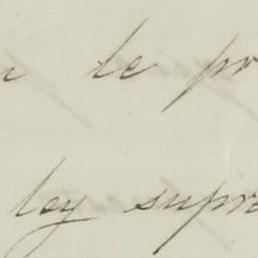 le pr
ley supre